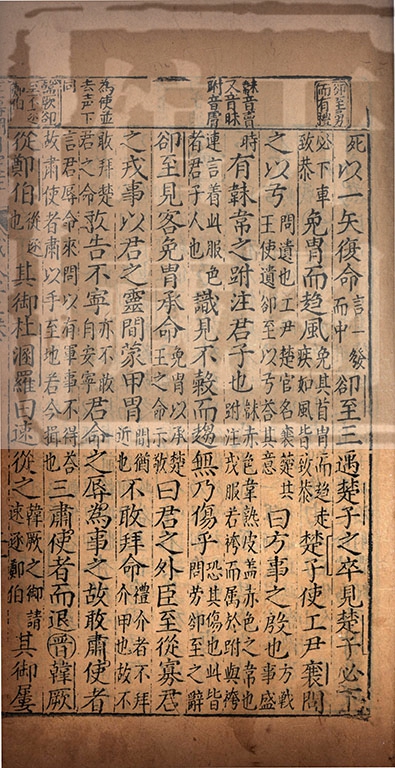 郤至勇而有禮
死以一矢復命言一發而中郤至三遇楚子之卒見楚子必下
必下車致恭免胄而趋風免其首胄而趋走疾如風皆致恭楚子使工尹襄問
之以弓問遺也工尹楚官名襄其王使遺郤至以弓荅其意曰方事之殷也方戰事盛
韎音妹又音昧跗音膚
時有韎韋之跗注君子也韎赤色韋熟皮盖赤色之韋也跗注戎服若袴而属於跗與袴
連言着此服色者君子人也識見不穀而趨無乃傷乎恐其傷也此皆問劳郤至之辭
郤至見客免胄承命免胄以承楚王之命示敬曰君之外臣至從寡君
之戎事以君之靈間蒙甲胄間猶近也不敢拜命禮介者不拜介甲也故不
為使並去声下同
敢拜楚君之命敢告不寧亦不敢自安寧君命之辱為事之故敢肅使者
言君辱命來問以有軍事不得荅故肅使者肅以手至地若今揖也三肅使者而退晉韓厥
從鄭伯從逐也其御杜溷羅曰速從之韓厥之御請速逐鄭伯其御屢